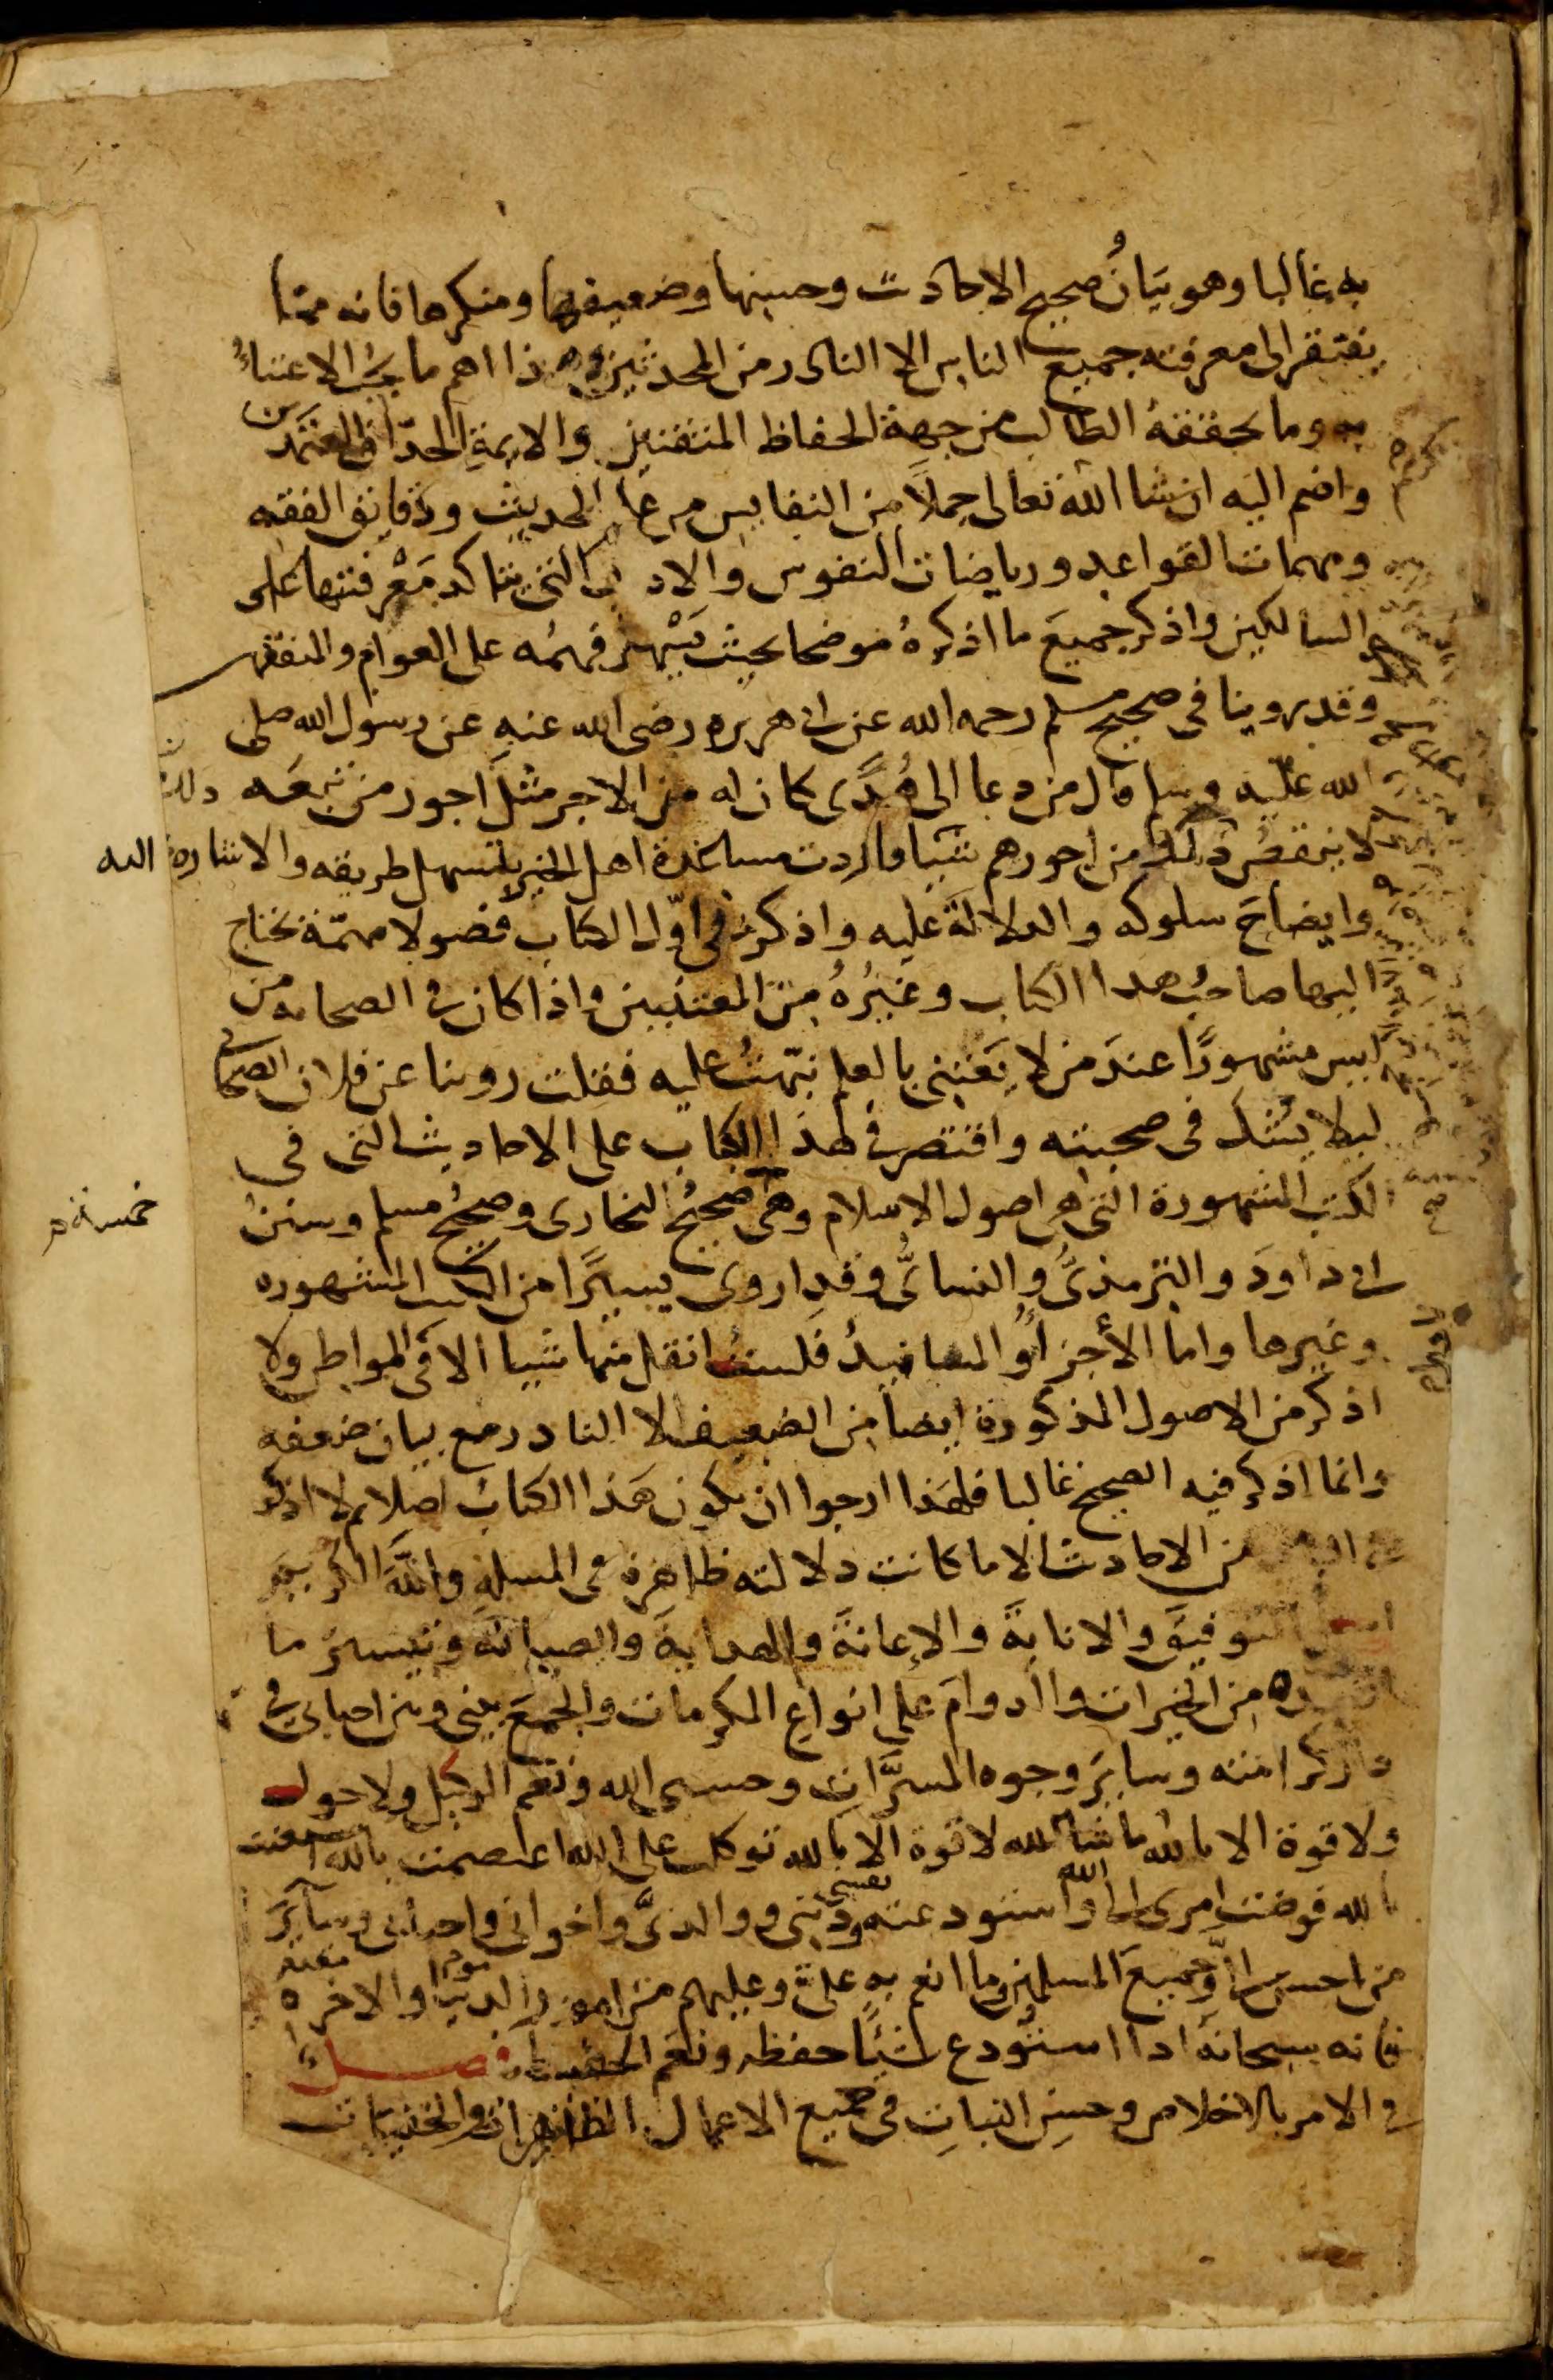 به غالبا وهو بيانُ صحيح الاحاديث وحسنها وضعيفها ومنكرها فانه مما
يفتقر الى معرفته جميع الناس الا النادر من المحدثين وهذا اهم ما يجب الاعتناءُ
به وما يحققهُ الطالب من جهة الحفاظ المتقنين والايمة الحذاق المعتمدين
واضم اليه ان شا الله تعالى جملاً من النفايس من علم الحديث ودقايق الفقه
ومهمات القواعد ورياضات النفوس والاداب التي تتاكد مَعْرفتها على
السالكين واذكر جميعَ ما اذكرهُ موضحا بحيث يَسْهل فهمُه على العوام والمتفقهين
وقد روينا فى صحيح مسلم رحمه الله عن ابى هريره رضى الله عنه عن رسول الله صلى
الله عليه وسلم قال من دعا الى هُدًى كان له من الاجر مثلَ اجور من تبعَه
لا ينقصُ ذلك من اجورهم شيا فاردت مساعدة اهل الخير بتسهيل طريقه والاشارة اليه
وايضاحَ سلوكه والدلالة عليه واذكر فى اوّل الكتاب فصولا مهمّة يحتاج
اليها صاحبُ هذا الكتاب وغيرُهُ من المعتنين واذا كان فى الصحابه من
ليس مشهورًا عندَ من لا يَعْتني بالعلم نبّهتُ عليه فقلت روينا عن فلان الصحابي
ليلا يُشَك فى صحبته واقتصر فى هذا الكتاب على الاحاديث التى فى
الكتب المشهورة التى هى اصول الاسلام وهى صحيحُ البخارى وصحيحُ مسلم وسننُ
خمسة
ابى داودَ والترمذىُّ والنسائىُّ وقد اروى يسيرًا من الكتب المشهوره
وغيرها واما الأجزاُ والمسانيدُ فلستُ انقل منها شيا الا فى المواطن ولا
اذكر من الاصول المذكورة ايضا من الضعيف الا النادر مع بيان ضعفه
وانما اذكر فيه الصحيح غالبا فلهذا ارجوا ان يكون هذا الكتابُ اصلا ثم لا اذكر
من الاحاديث الا ما كانت دلالته ظاهرة فى المسلةِ واللهَ الكريمَ
التوفيقَ والانابةَ والإعانةَ والهدايةَ والصيانةَ وتيسيرَ ما
من الخيرات والدوامَ على انواع المكرمات والجمعَ بينى وبين احبابى فى
دار كرامته وسايرَ وجوه المسرَّات وحسبى الله ونعم الوكيل ولا حول
ولا قوة الا بالله ما شا الله لا قوة الا بالله توكلت على الله اعتصمت بالله استعنت
بالله فوضت امرى الى الله واستودعته نفسى ودينى ووالدىَّ واخوانى واحبابى وسايرَ
من احسن الىَّ وجميعَ المسلمين وما انعم به علىَّ وعليهم من امور الدنيا والاخره
فانه سبحانه اذا استُودع شيًا حفظه ونعم الحفيظ فصل
فى الامر بالاخلاص وحسن النياتِ فى جميع الاعمال الظاهرات والخفيات